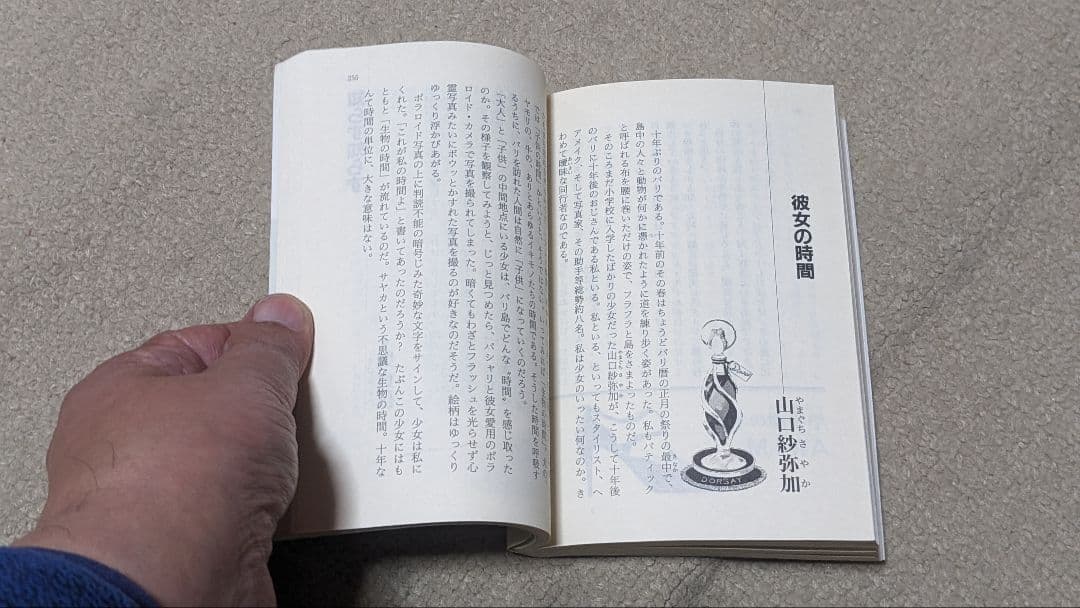 彼女の時間
やまぐちさやか
山口紗弥加
十年ぶりのバリである。十年前のその春はちょうどバリ暦の正月の祭りの最中で、
さなか
島中の人々と動物が何かに憑かれたように道を練り歩く姿があった。私もバティック
と呼ばれる布を腰に巻いただけの姿で、フラフラと島をさまよったものだ。
そのころまだ小学校に入学したばかりの少女だった山口紗弥加が、こうして十年後
のバリに十年後のおじさんである私といる。私といる、といってもスタイリスト、ヘ
アメイク、そして写真家、その助手等総勢約八名。私は少女のいったい何なのか。き
わめて曖昧な同行者なのである。
DORSAY
ヤモリの、牛の、ありとあらゆるイキモノたちの時間である。そうした時間を呼吸す
るうちに、バリを訪れた人間は自然に「子供」になっていくのだろう。
「大人」と「子供」の中間地点にいる少女は、バリ島でどんな〝時間〟を感じ取った
のか。その様子を観察してみようと、じっと見つめたら、パシャリと彼女愛用のポラ
ロイド・カメラで写真を撮られてしまった。暗くてもわざとフラッシュを光らせず心
霊写真みたいにボウッとかすれた写真を撮るのが好きなのだそうだ。絵柄はゆっくり
ゆっくり浮かびあがる。
ポラロイド写真の上に判読不能の暗号じみた奇妙な文字をサインして、少女は私に
くれた。「これが私の時間よ」と書いてあったのだろうか？　たぶんこの少女にはも
ともと「生物の時間」が流れているのだ。サヤカという不思議な生物の時間。十年な
んて時間の単位に、大きな意味はない。